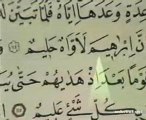 وَعَدَهَا إِيَّاهُ فَلَمَّا تَبَيَّنَ
إِبْرٰهِيمَ لَأَوَّاهٌ حَلِيمٌ
بَعْدَ إِذْ هَدٰيهُمْ حَتَّى
كُلِّ شَيْءٍ عَلِيمٌ